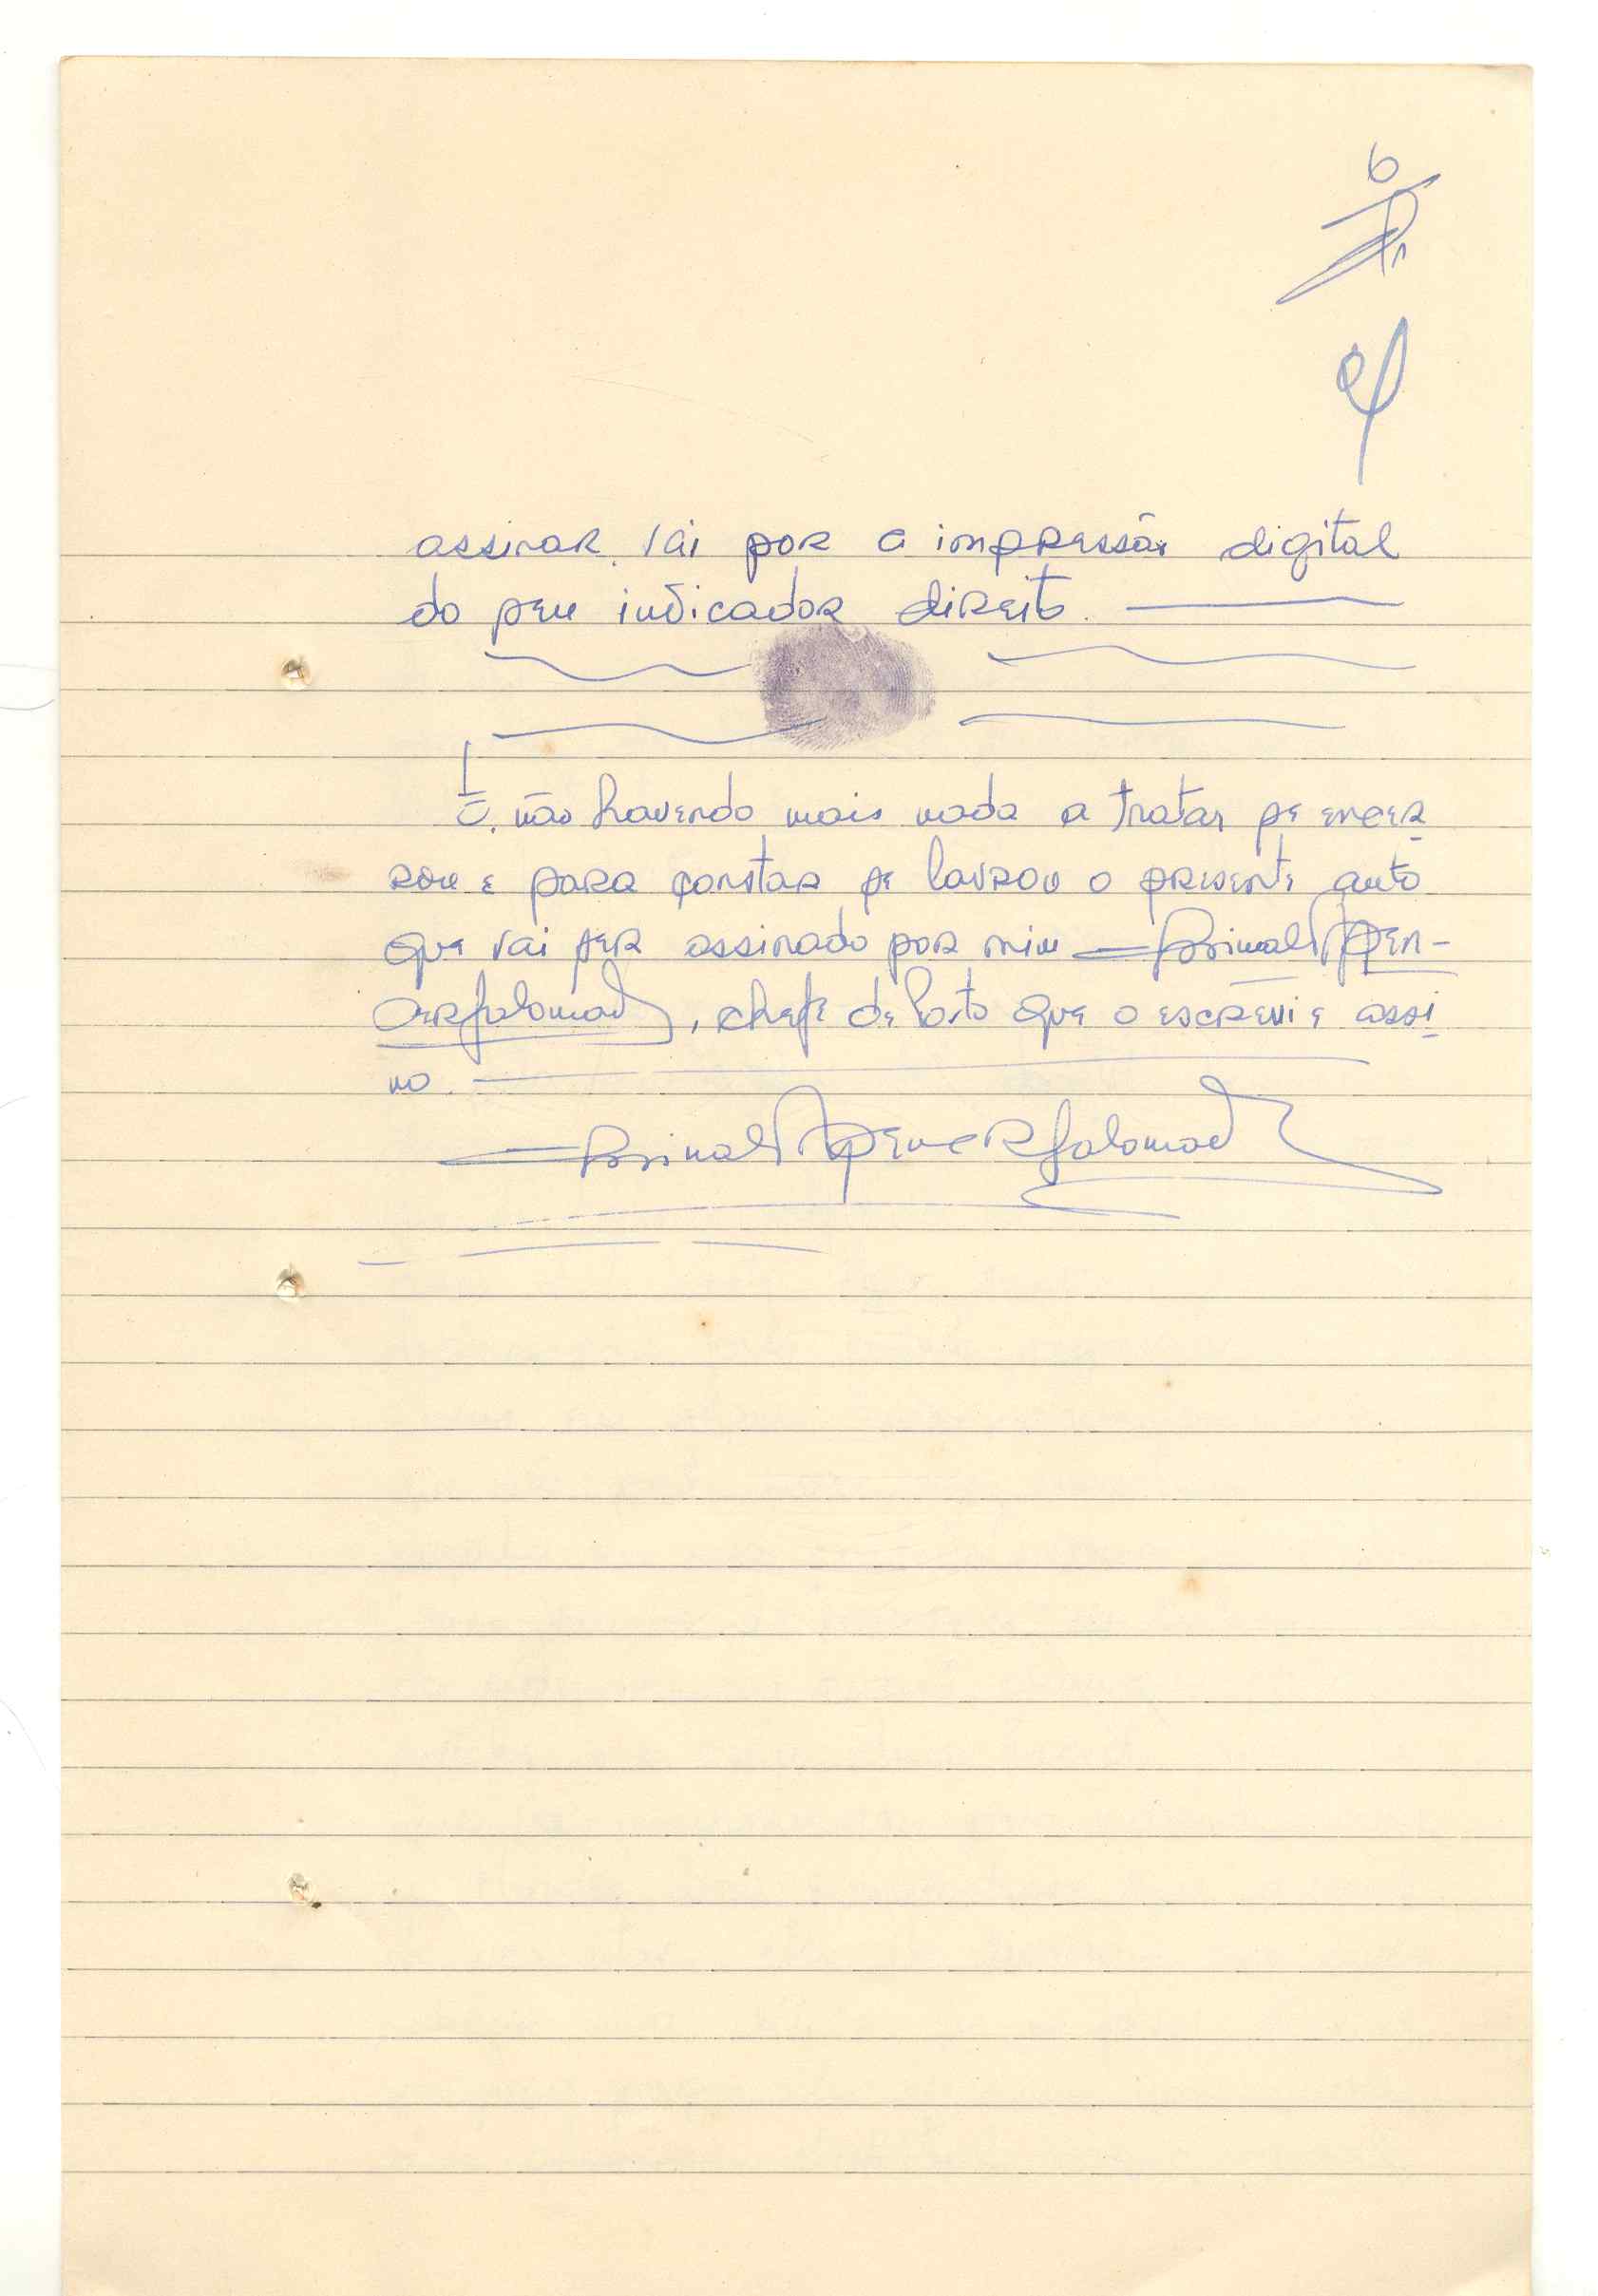 6
assinar, vai por a impressão digital
do seu indicador direito.
E, não havendo mais nada a tratar se encer
rou e para constar se lavrou o presente auto
que vai ser assinado por mim
, chefe de Posto que o escrevi e assi
no.